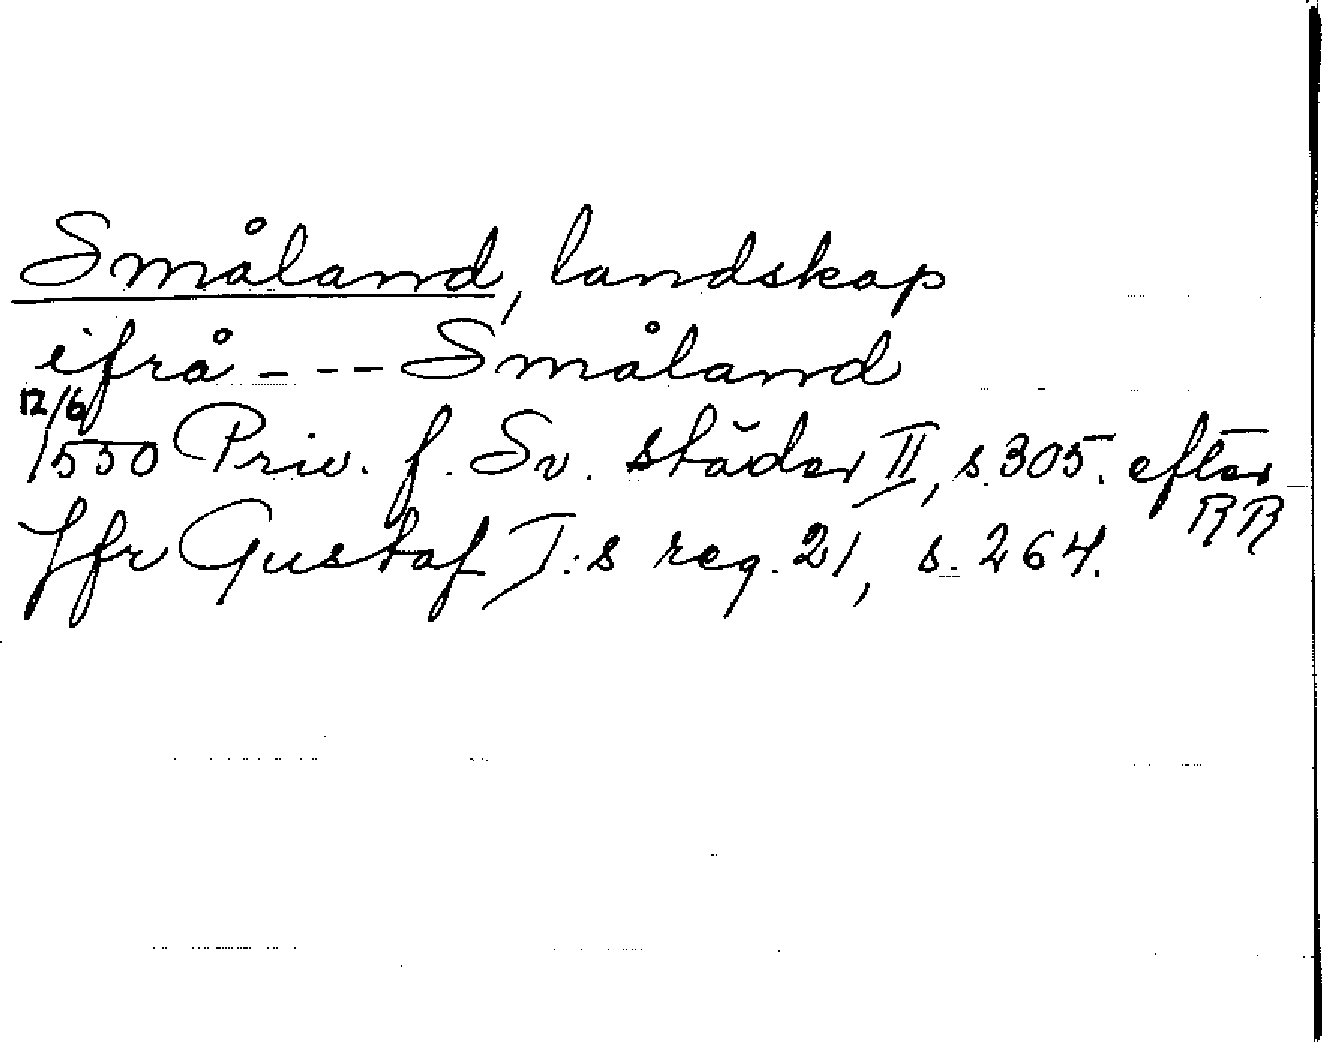 Småland, landskap
ifrå --- Småland
12/6
1550 Priv. f. Sv. städer II, s. 305. efter RR
Jfr Gustaf I:s reg. 21, s. 264.